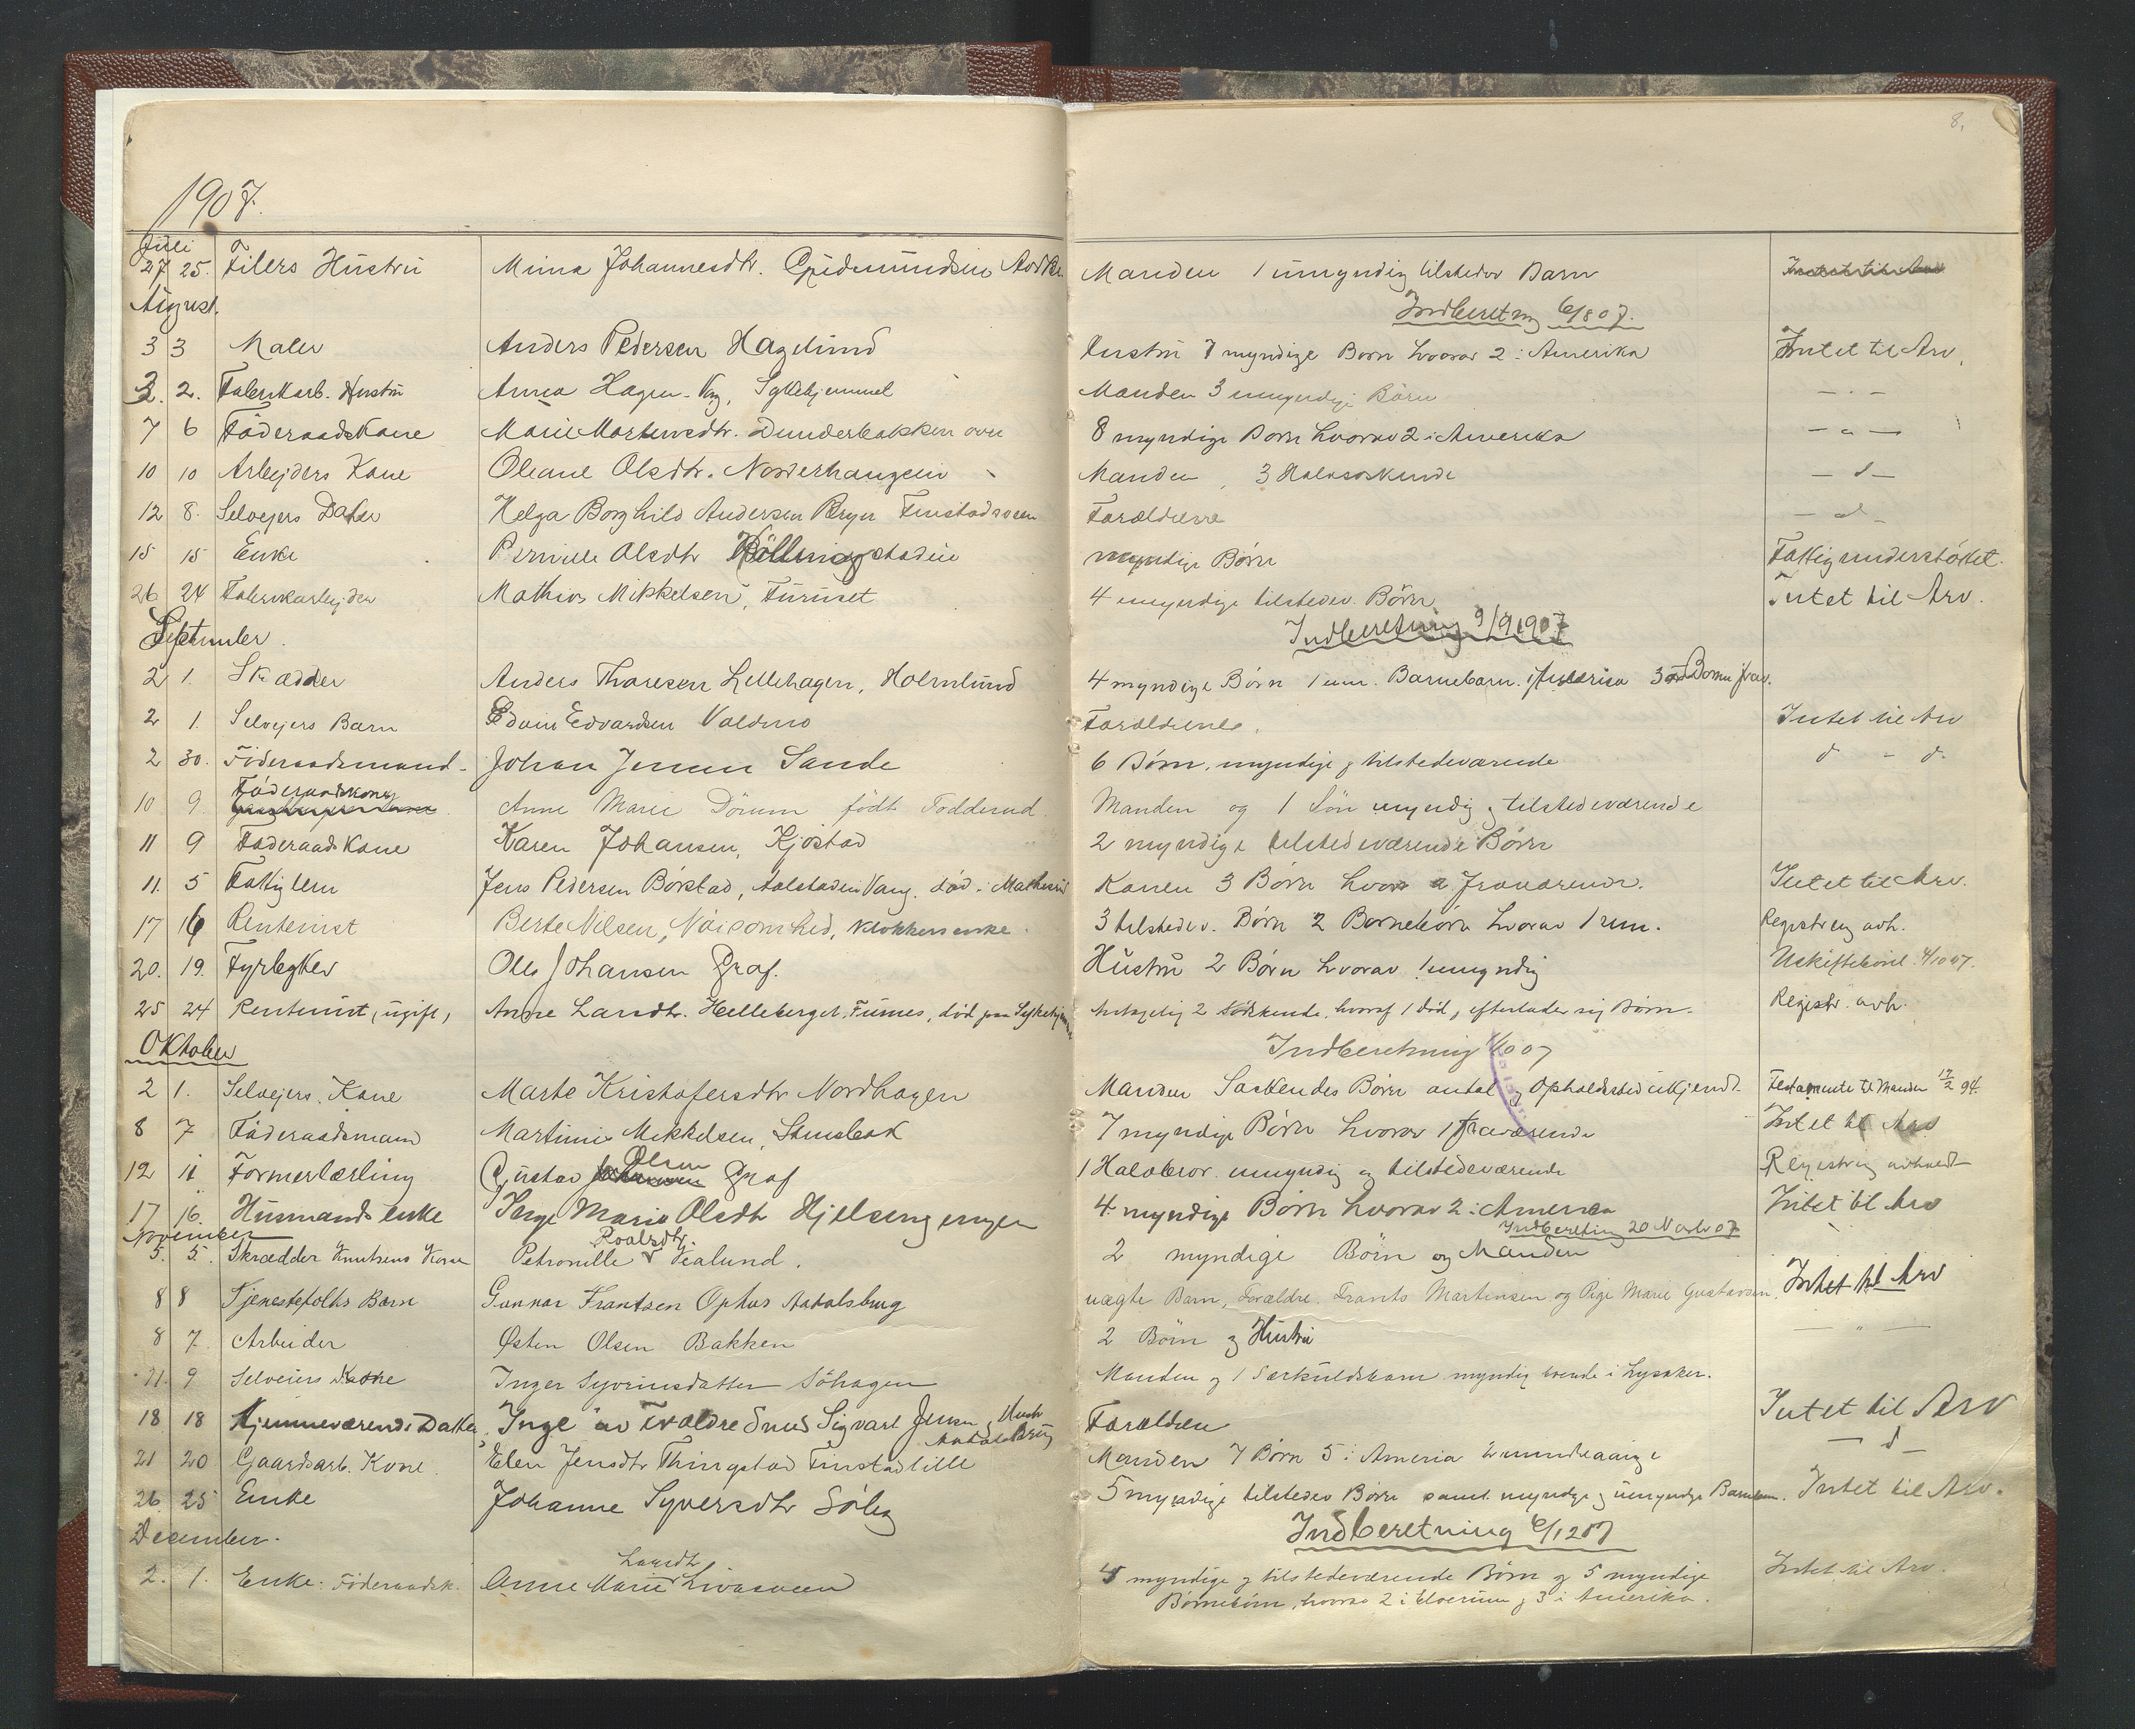 8.
1907.
Juli
27 25. Filers Hustru Mina Johannesdtr. Gudmundsen Manden 1 umyndig tilstedev Barn Intet til Arv
August. Indberetning 6/8 07.
3 3 Maler Anders Pedersen Haglund Hustru 7 myndige Born hvorav 2 i Amerika Intet til Arv.
3. 2. Fabrikarb. Hustru Anna Hagen Vg, Sykehjemmet Manden 3 umyndige Børn — " —
7 6 Föderaadskone Marie Martinsdtr. Dunderbakken øvre 8 myndige Born hvorav 2 i Amerika — " —
10 10 Arbejders Kone Oleane Olsdtr. Norderhaugen Manden, 3 Halvsøskende — d —
12 8. Selvejers Datter Helga Borghild Andersen Bryn Finstadsveen Forældrene — d —
15 15 Enke Pernille Olsdtr myndige Børn Fattigunderstöttet.
26 24 Fabrikarbejder Mathias Mikkelsen, Furuset 4 umyndige tilstedev. Børn Intet til Arv.
September. Indberetning 9/9 1907
2 1. Skrædder Anders Thoresen Lillehagen, Holmlund 4 myndige Børn 1 um. Barnebarn i Amerika 3
2 1. Selvejers Barn Edvin Edvardsen Voldmo Forældrene. Intet til Arv
2 30. Föderaadsmand Johan Jensen Sande 6 Børn, myndige og tilstedeværende d - d.
10 9. Föderaadskone Anne Marie Dörum født Fodderud. Manden og 1 Sön myndig og tilstedeværende
11 9 Föderaads Kone Karen Johansen, Kjöstad 2 myndige tilstedeværende Børn
11. 5 Fattiglem Jens Pedersen Börstad, Aalstadeie Vang. död i Konen 3 Børn hvorav 2 fraværende. Intet til Arv.
17 16 Rentenist Berte Nilsen, Nöisomhed, Klokkersenke. 3 tilstedev. Børn 2 Barnebörn hvorav 1 um. Registrering avh.
20. 19. Fyrbøter Ole Johansen Graf. Hustru 2 Børn hvorav 1 umyndig Uskiftebevil. 4/10 07.
25 24 Rentenist, ugift, Anne Larsdtr. Helleberget, Furnes, död paa Sykehjemmet 2 Södskende, hvoraf 1 död, efterlader sig Börn. Registr. avh.
Oktober Indberetning 1/10 07
2 1. Selvejers. Kone Marte Kristofersdtr Nordhagen Manden Søskendes Børn antal og Opholdssted ukjendt. Testamente til Manden 17/2 94.
8 7 Föderaadsmand Martinus Mikkelsen, Stensbak 7 myndige Børn hvorav 1 fraværende Intet til Arv
12 11 Formerlærling Gustav Johansen Olsen Graf 1 Halvbror. umyndig og tilstedeværende Registrering avholdt
17 16. Husmands enke Inge Marie Olsdtr Hjelsengengen 4 myndige Børn hvorav 2 i Amerika Intet til Arv
November Indberetning 20 Novbr 07
5. 5. Skrædder Knutsens Kone Petronille Roalsdtr. Vealund. 2 myndige Börn og Manden
8 8 Tjenestefolks Barn Gunnar Frantsen Ophus Aadalsbrug uægte Barn, Forældre. Frants Martinsen og Pige Marie Gustavsen. Intet til Arv
8 7. Arbeider Østen Olsen Bakken 2 Börn og Hustru — " —
11. 9 Selveiers Kone Inger Syverinsdatter Söhagen Manden og 1 Særkuldsbarn myndig boende i Lysaker.
18 18 Hjemmeværende Datter "Inge" av Forældre Smed Sigvart Jensen & Hustr Aadalsbrug Forældrene Intet til Arv
21 20 Gaardsarb. Kone. Elen Jensdtr Thingstad Finstad lille Manden 7 Børn 5 i America — d —
26 25 Enke Johanne Syversdtr Solby 5 myndige tilstedev Børn samt myndige og umyndige Barnebørn. Intet til Arv.
December. Indberetning 6/12 07
2. 1. Enke. Föderaadsk. Anne Marie Larsdtr Livasveen 5 myndige og tilstedeværende Børn og 5 myndige Intet til Arv.
Børnebörn, hvorav 2 i Elverum og 3 i Amerika.